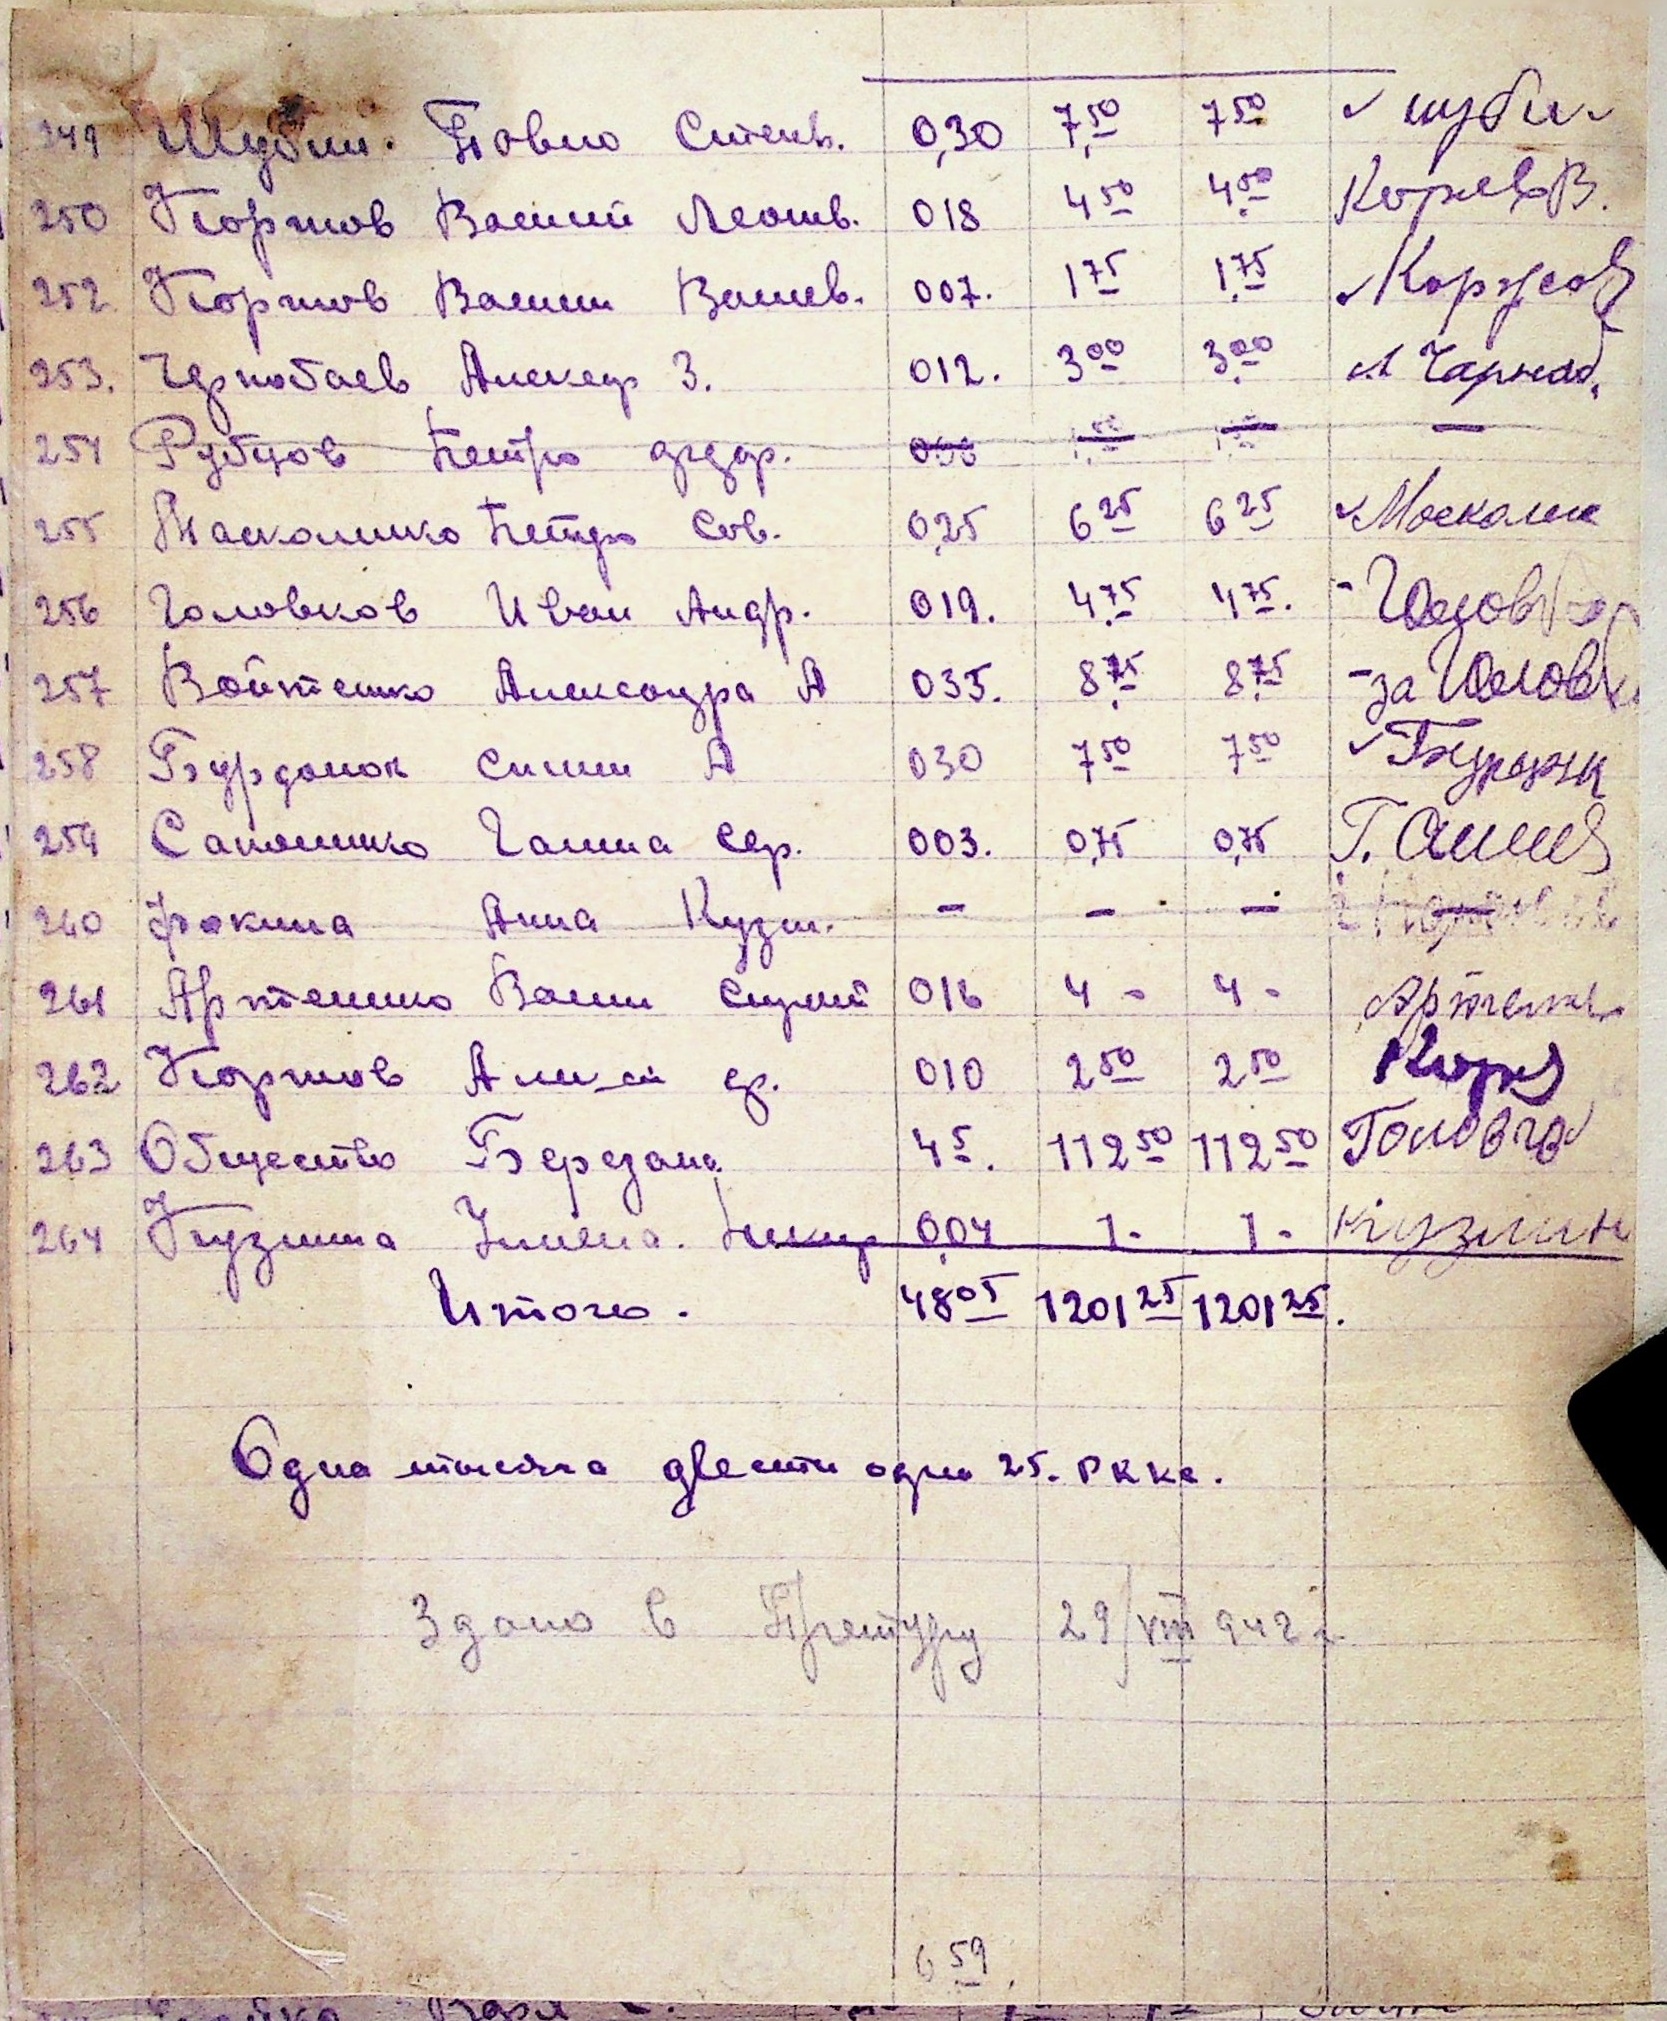 249 Шубин. Павло Степ. 0,30 7,50 7 50 Шубин
250 Коржов Василий Леонт. 018 4 50 4 50 Коржов В.
252 Коржов Васили Васиев. 007. 1 75 1 75 Коржов
253. Чернобаев Алексар З. 012. 3 00 3 00 Чарнаб.
254 Рубцов Петро —
255 Москаленко Петро Сав. 0,25 6 25 6 25 Москале
256 Головков Иван Андр. 019. 4 75 4 75. Головков
257 Войтенко Александра А 035. 8 75 8 75 - за Голов
258 Бурданок А 030 7 50 7 50
259 Галина Сер. 003. 0,75 0,75 Г.
260 Фокина Анна Кузм. — — —
261 Артеменко Васили 016 4 - 4 - Артеме
262 Коржов Алексей 010 2 50 2 50 Корж
263 Общество Березана 45. 112 50 112 50 Головко
264 Кузмина 0,04 1 - 1 - Кузмин
Итого. 48 05 1201 25 1201 25.
Одна тысяча двести один 25.
Здано в 29/VIII 942 г.
6 59.